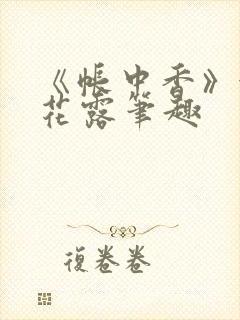 《帳中香》
花露筆趣
復卷卷